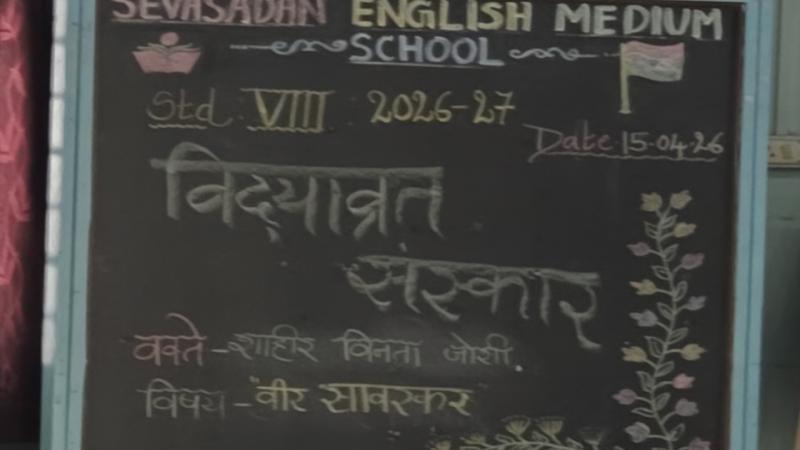 SEVASADAN ENGLISH MEDIUM
SCHOOL
Std. VIII 2026-27
Date 15.04.26
विद्याव्रत
संस्कार
वक्ते - शाहीर विनता जोशी.
विषय - "वीर सावरकर"